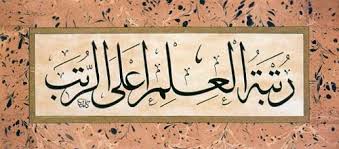 رُتْبَةُ الْعِلْمِ اَعْلَى الرُّتَبِ